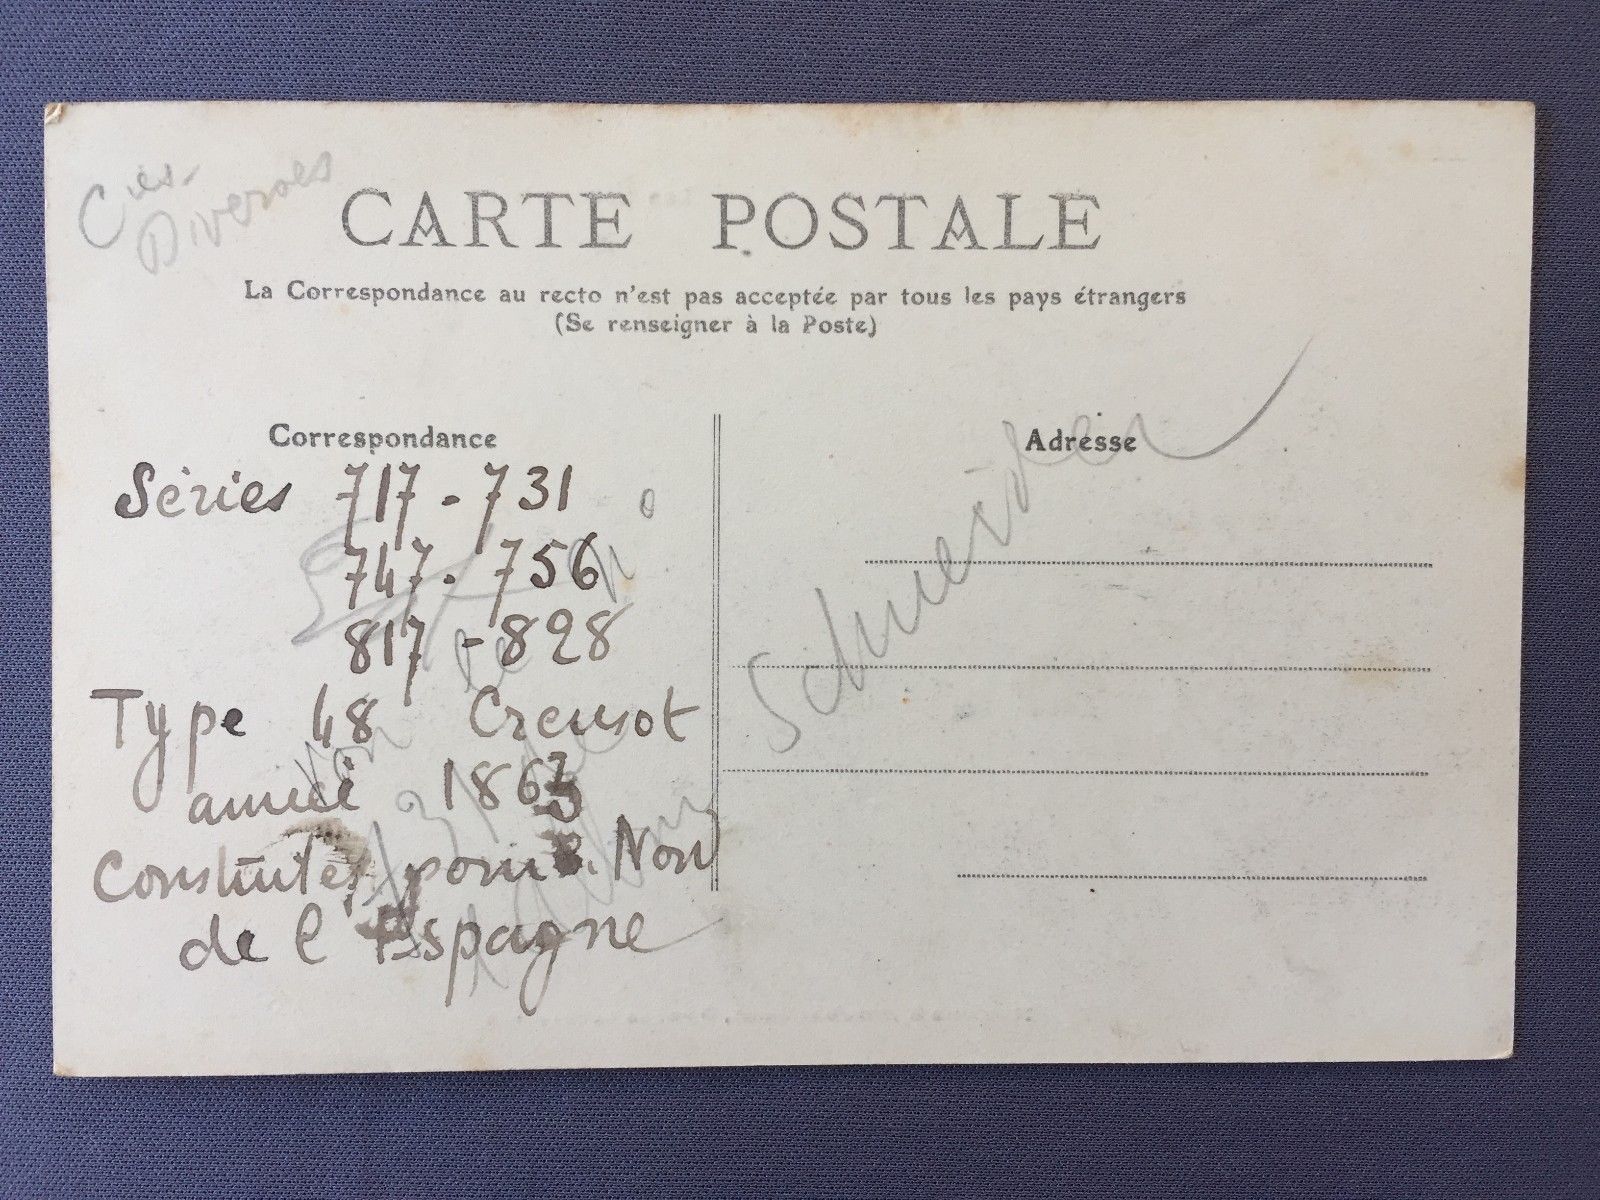 Cies. Diverses
CARTE POSTALE
La Correspondance au recto n'est pas acceptée par tous les pays étrangers
(Se renseigner à la Poste)
Correspondance
Adresse
Séries 717-731
747-756
817-828
Type 48 Creusot
année 1863
Construites pour Nord
de l'Espagne
Schneider